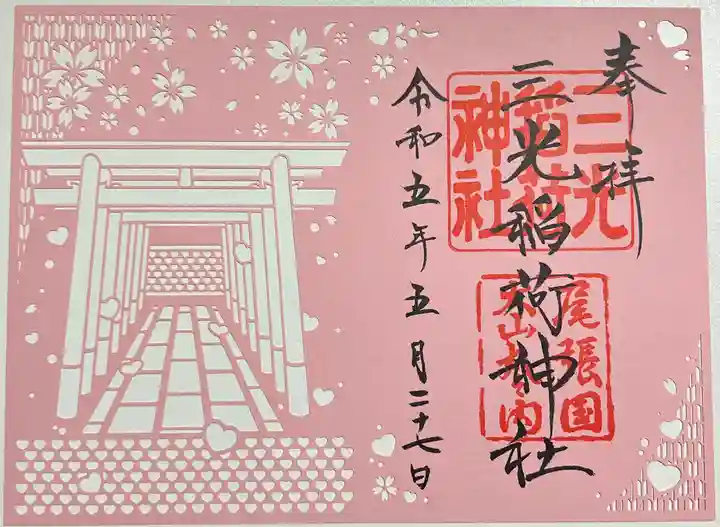 奉拝
三光稲荷神社
令和五年五月二十七日
三光
稲荷
神社
尾張国
犬山城内